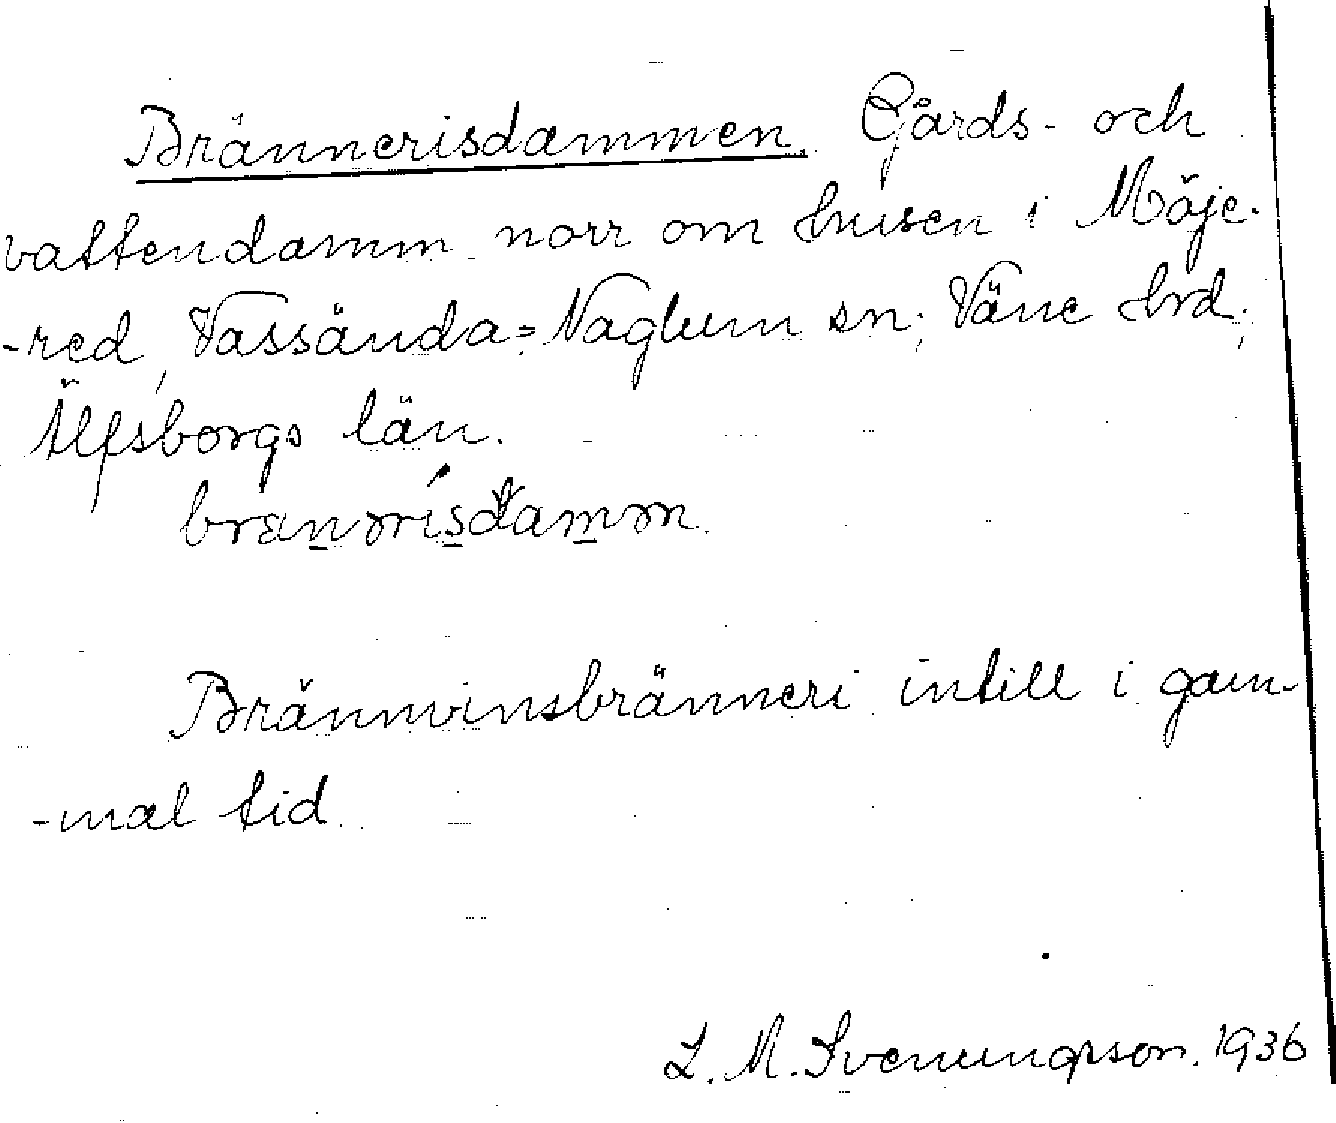 Brännerisdammen. Gårds- och
vattendamm norr om husen i Möje-
-red, Vassända=Naglum sn; Väne hrd;
Älfsborgs län.
Brännvinsbränneri intill i gam-
-mal tid.
L. M. Svenungson. 1936